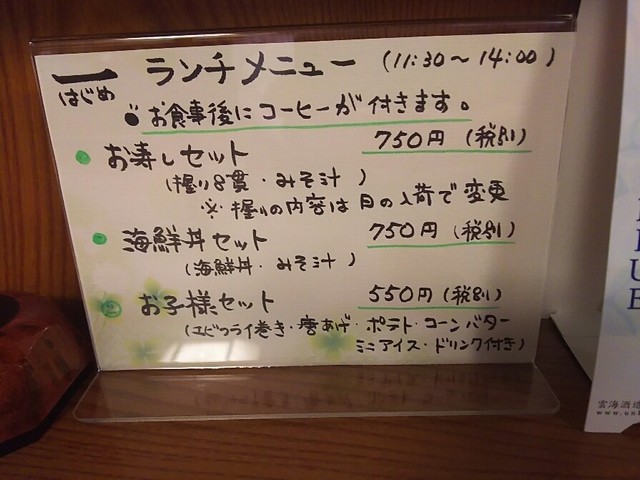 一 ランチメニュー (11:30〜14:00)
はじめ
●お食事後にコーヒーが付きます。
お寿しセット 750円(税別)
(握り8貫・みそ汁)
※握りの内容は日の入荷で変更
海鮮丼セット 750円(税別)
(海鮮丼・みそ汁)
お子様セット 550円(税別)
(えびフライ巻き・唐あげ・ポテト・コーンバター
ミニアイス・ドリンク付き)
U
E
雲海酒造